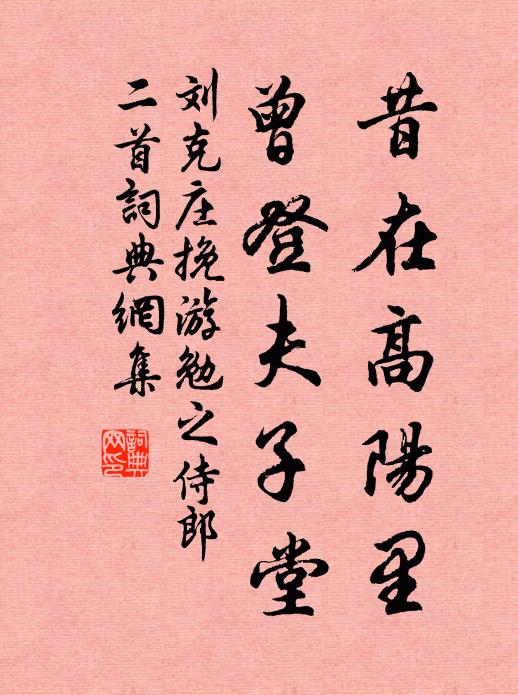 昔在高陽里
曾登夫子堂
刘克庄挽游勉之侍郎
二首詞典網集
詞典網印